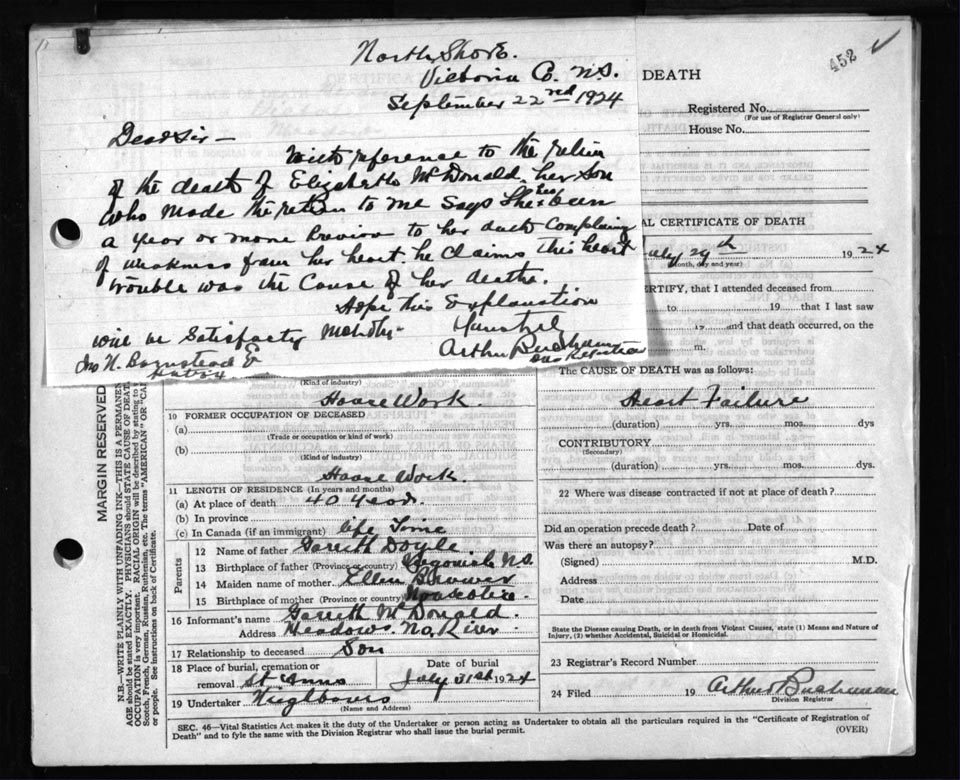 North Shore.
Victoria Co. N.S.
September 22nd 1924
Dear Sir —
With reference to the return
of the death of Elizabeth McDonald. her son
who made the return to me says She has been
a year or more Previous to her death Complaining
of weakness from her heart. he Claims this heart
trouble was the Cause of her death.
Hope this Explanation
will be Satisfactory
Arthur Buchanan
Div Registrar
452
DEATH
Registered No.
(For use of Registrar General only)
House No.
AL CERTIFICATE OF DEATH
July 29th 1924
(Month, day and year)
ERTIFY, that I attended deceased from
to 19 that I last saw
19 and that death occurred, on the
m.
The CAUSE OF DEATH was as follows:
Heart Failure
(duration) yrs. mos. dys
CONTRIBUTORY
(Secondary)
(duration) yrs. mos. dys.
22 Where was disease contracted if not at place of death?
Did an operation precede death? Date of
Was there an autopsy?
(Signed) M.D.
Address
Date
State the Disease causing Death, or in death from Violent Causes, state (1) Means and Nature of
Injury, (2) whether Accidental, Suicidal or Homicidal.
23 Registrar's Record Number
24 Filed 19 Arthur Buchanan
Division Registrar
(Kind of industry)
House Work
10 FORMER OCCUPATION OF DECEASED
(a)
(Trade or occupation or kind of work)
(b)
(Kind of industry)
House Work.
11 LENGTH OF RESIDENCE (In years and months)
(a) At place of death 40 years.
(b) In province
(c) In Canada (if an immigrant) life Time
Parents
12 Name of father Garrett Doyle
13 Birthplace of father (Province or country) Ingonish N.S.
14 Maiden name of mother Ellen
15 Birthplace of mother (Province or country) Nova Scotia
16 Informant's name Garrett McDonald.
Address Meadows No. River
17 Relationship to deceased Son
18 Place of burial, cremation or Date of burial
removal St Anns July 31st 1924
19 Undertaker Neighbours
(Name and Address)
SEC. 46—Vital Statistics Act makes it the duty of the Undertaker or person acting as Undertaker to obtain all the particulars required in the "Certificate of Registration of
Death" and to fyle the same with the Division Registrar who shall issue the burial permit. (OVER)
MARGIN RESERVED
N.B.—WRITE PLAINLY WITH UNFADING INK—THIS IS A PERMANE
AGE should be stated EXACTLY. PHYSICIANS should STATE CAUSE OF DEATH
OCCUPATION is very important. RACIAL ORIGIN will be described by stating to w
Scotch, French, German, Russian, Ruthenian, etc. The terms "AMERICAN" OR "CA
or people. See instructions on back of Certificate.